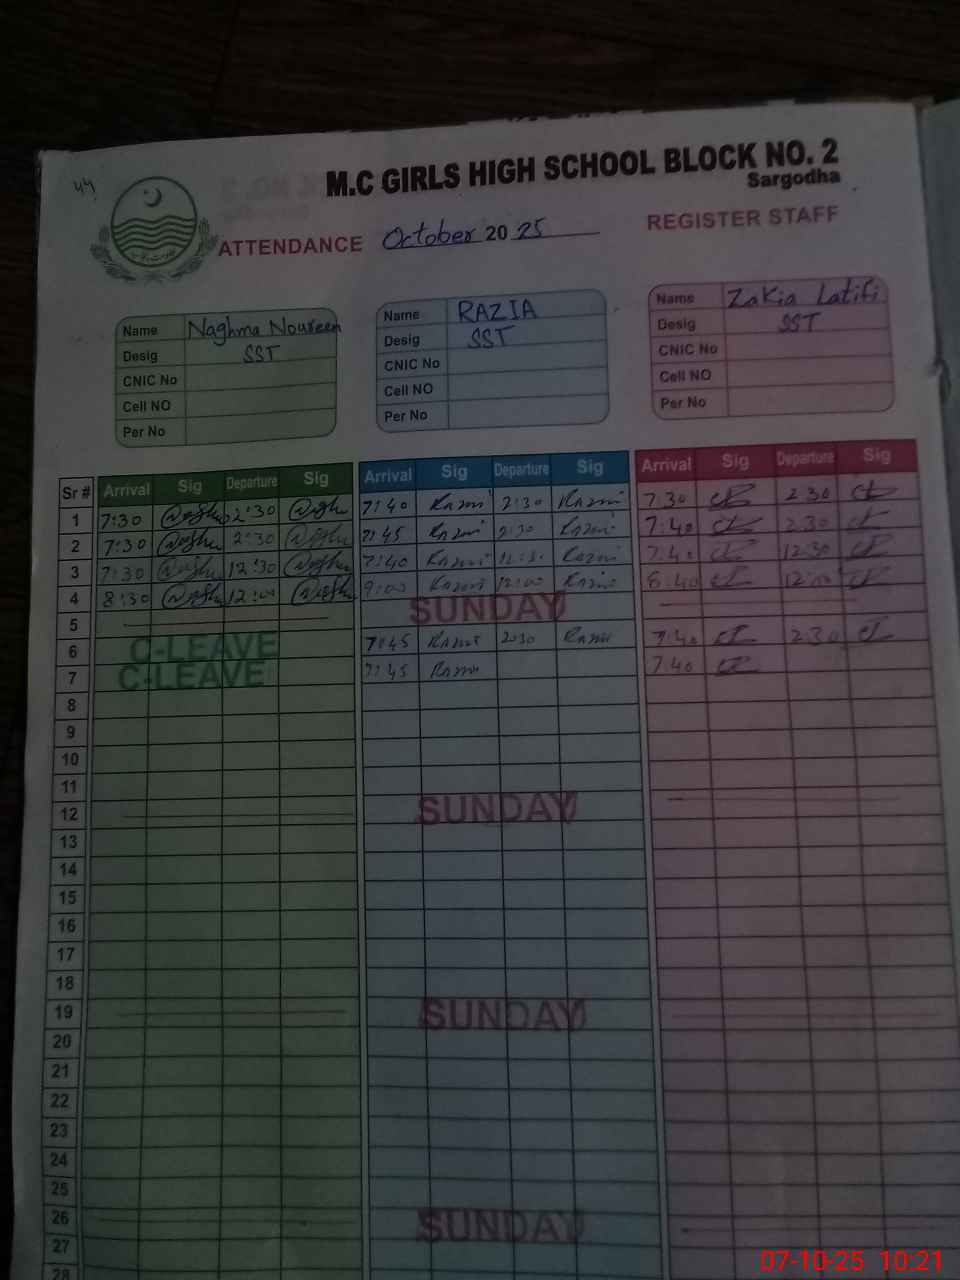 44
M.C GIRLS HIGH SCHOOL BLOCK NO. 2
Sargodha
ATTENDANCE October 20 25 REGISTER STAFF
Name Naghma Noureen
Desig SST
CNIC No
Cell NO
Per No
Name RAZIA
Desig SST
CNIC No
Cell NO
Per No
Name Zakia Latifi
Desig SST
CNIC No
Cell NO
Per No
Sr # Arrival Sig Departure Sig Arrival Sig Departure Sig Arrival Sig Departure Sig
1 7:30 2:30 7:40 2:30 7:30 2:30
2 7:30 2:30 7:45 2:30 7:40 2:30
3 7:30 12:30 7:40 7:40 12:30
4 8:30 12:00 9:00 12:00 12:00
5 SUNDAY
6 C-LEAVE 7:45 2:30 7:40 2:30
7 C-LEAVE 7:45 7:40
8
9
10
11
12 SUNDAY
13
14
15
16
17
18
19 SUNDAY
20
21
22
23
24
25
26 SUNDAY
27
28
07-10-25 10:21